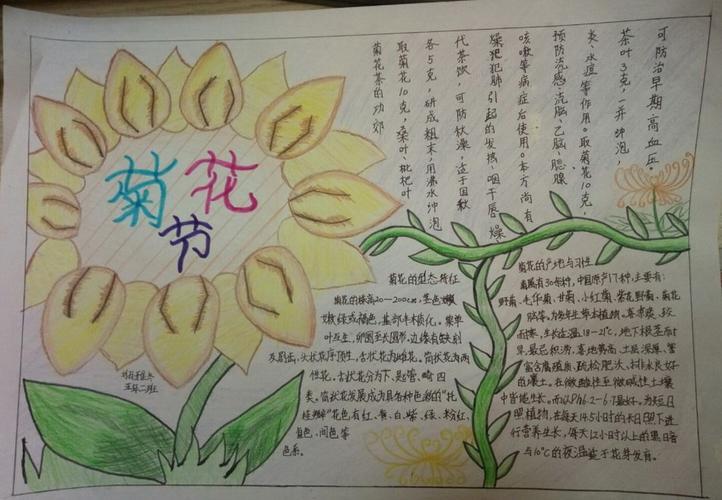 菊花节
菊花茶的功效
取菊花10克,桑叶、枇杷叶
各5克,研成粗末,用沸水冲泡
代茶饮,可防秋燥。适于因秋
燥犯肺引起的发热、咽干唇燥
咳嗽等病症后使用。本方尚有
预防流感、流脑、乙脑、腮腺
类、水痘等作用。取菊花10克,
茶叶3克,一并冲泡,
可防治早期高血压。
菊花的型态特征
菊花的株高20-200cm,茎色嫩
嫩绿或褐色,基部半木质化。単单
叶互生,卵圆至长圆形,边缘有缺刻
及锯齿,头状花序顶生,舌状花为雌花。筒状花为两
性花。舌状花分为下、匙、管、畸四
类。筒状花发展成为具各种色彩的“托
桂瓣”花色有红、黄、白、紫、绿、粉红、
复色、间色等
色系。
菊花的产地与习性
菊属有30余种,中国原产17种,主要有:
野菊、毛华菊、甘菊、小红菊、紫花野菊、菊花
脑等。为多年生草本植物。喜凉爽、较
耐寒,生长适温18-21℃,地下根茎耐
旱,最忌积涝,喜地势高、土层深厚、
富含腐殖质、疏松肥沃、排水良好
的壤土。在微酸性至微碱性土壤
中皆能生长。而以PH6.2-6.7最好。为短日
照植物,在每天14.5小时的长日照下进
行营养生长,每天12小时以上的黑暗
与10℃的夜温适于花芽发育。